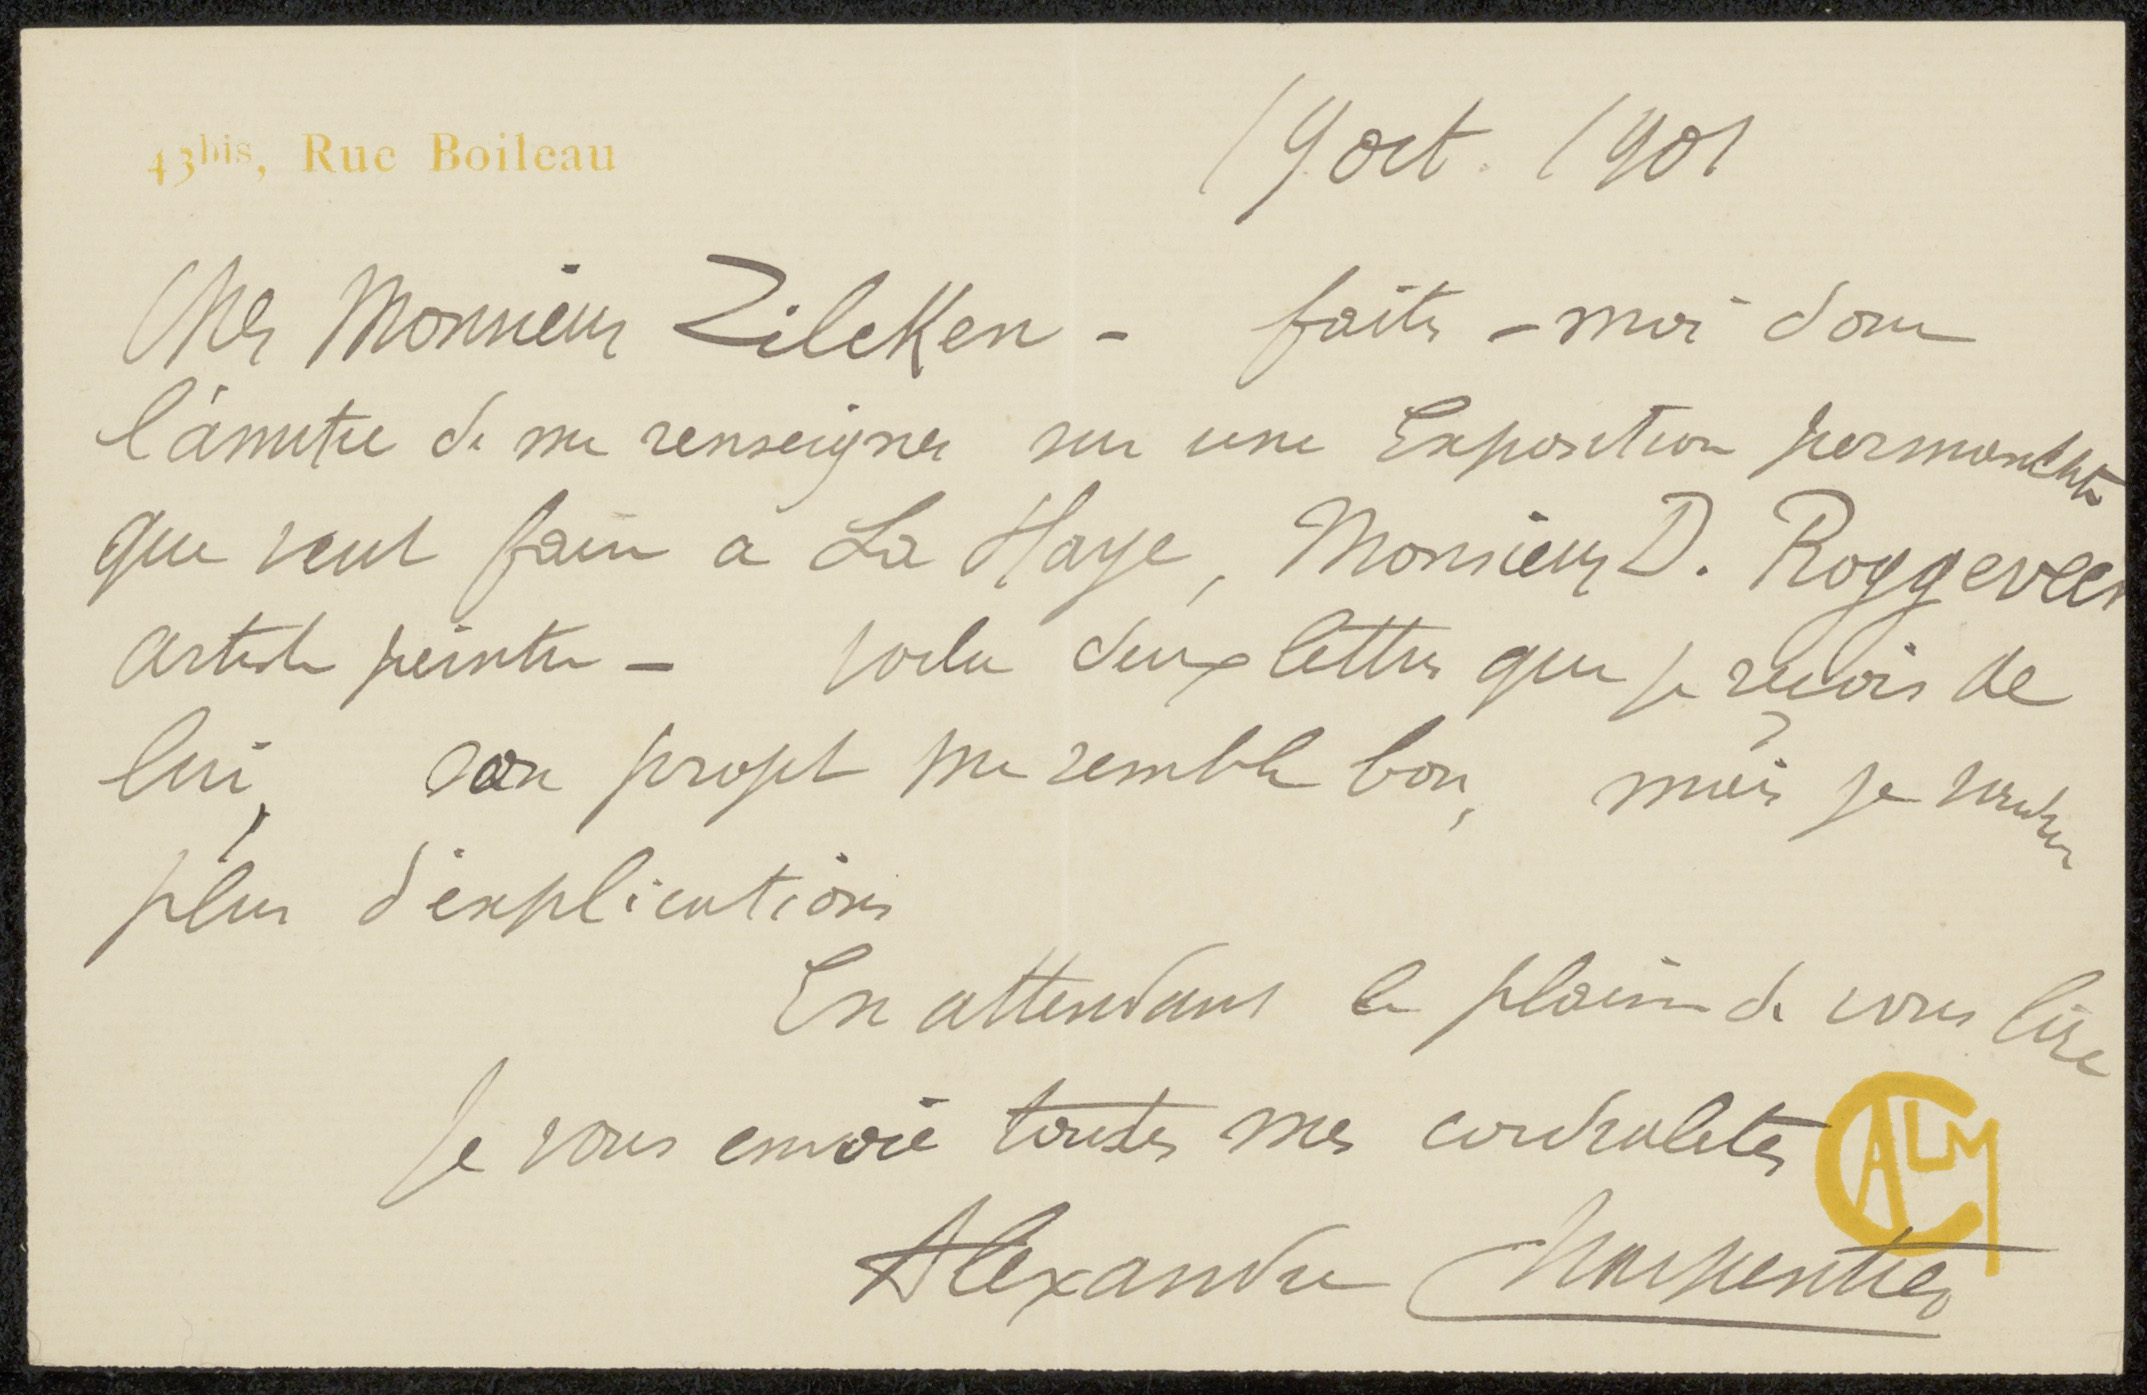 43bis, Rue Boileau
19 oct. 1901
Cher Monsieur Zilcken - faites-moi donc
l'amitié de me renseigner sur une Exposition permanente
que veut faire a La Haye, Monsieur D. Roggeveen
artiste peintre - voila deux lettres que je reçois de
lui, son projet me semble bon, mais je voudrais
plus d'explications
En attendant le plaisir de vous lire
Je vous envoie toutes mes cordialités
Alexandre Charpentier
CALM